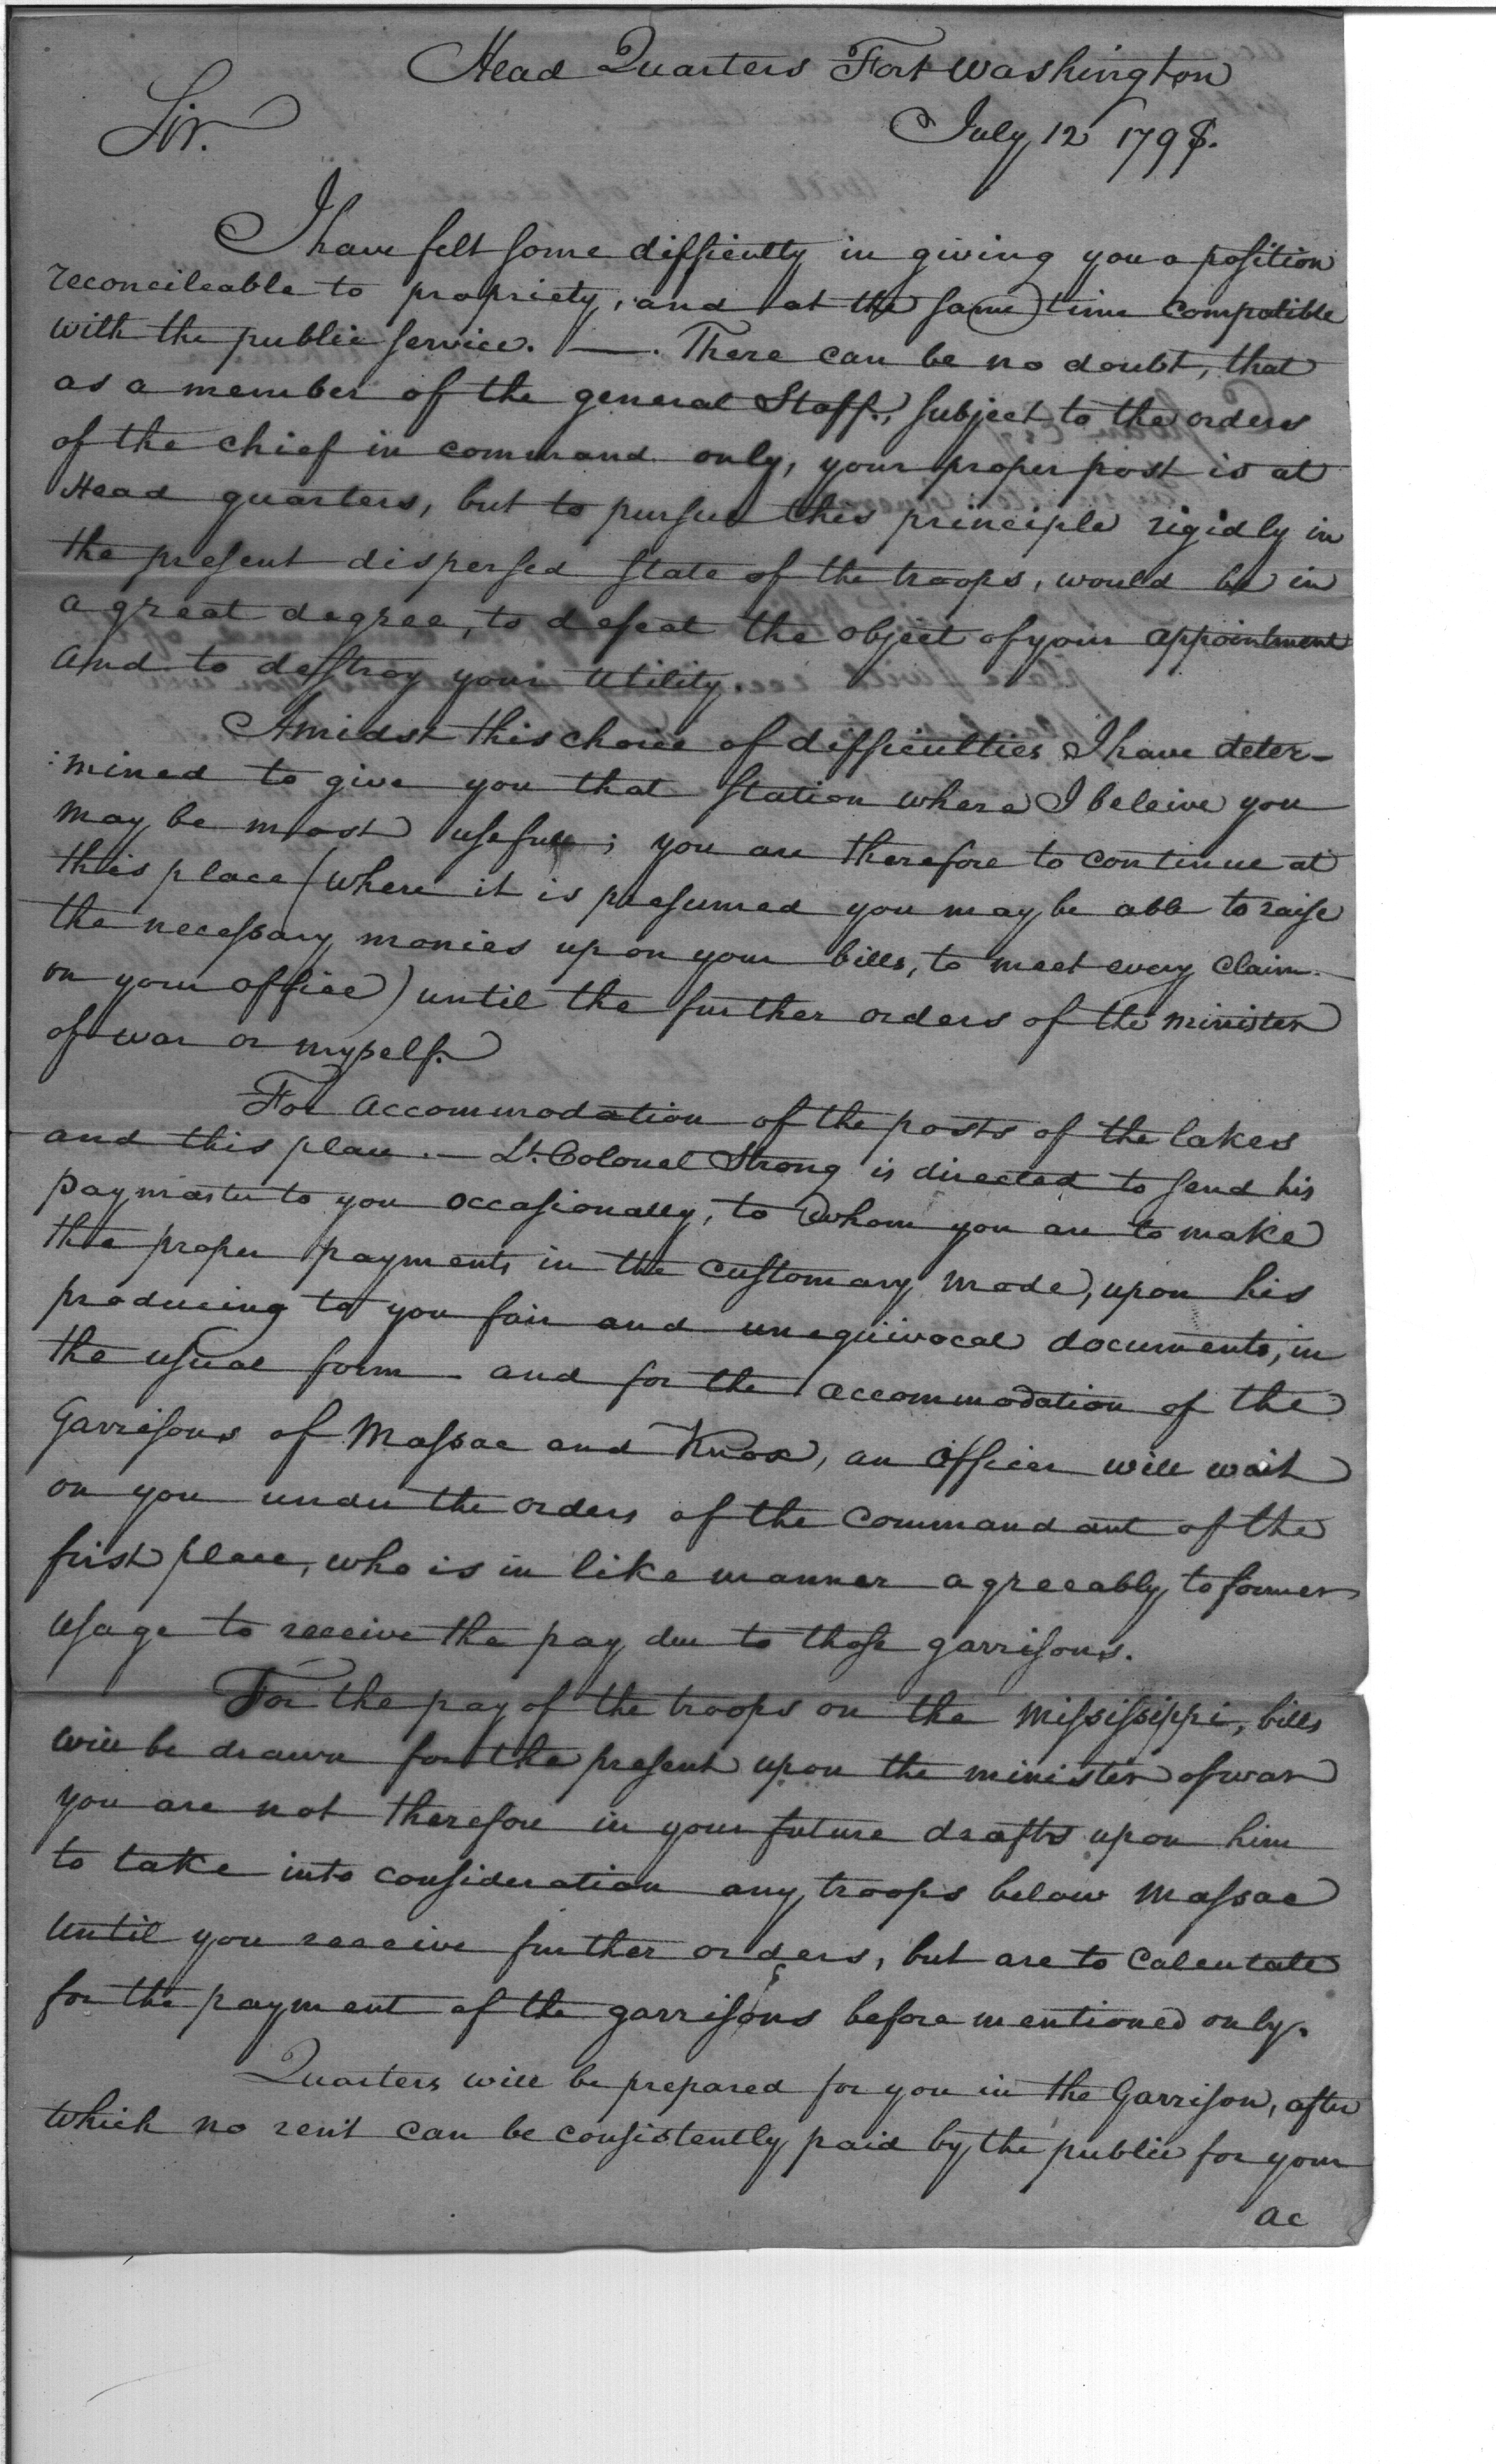 Head Quarters Fort Washington
Sir.
July 12 1798.
I have felt some difficulty in giving you a position
reconcileable to propriety, and at the same time compatible
with the public service. —. There can be no doubt, that
as a member of the general Staff, subject to the orders
of the chief in command only, your proper post is at
Head quarters, but to pursue this principle rigidly in
the present dispersed state of the troops, would be in
a great degree, to defeat the object of your appointment
and to destroy your utility.
Amidst this choice of difficulties I have deter-
:mined to give you that station where I beleive you
may be most usefull; you are therefore to continue at
this place (where it is presumed you may be able to raise
the necessary monies upon your bills, to meet every claim
on your office) until the further orders of the minister
of war or myself.
For accommodation of the posts of the lakes
and this place. — Lt. Colonel Strong is directed to send his
paymaster to you occasionally, to whom you are to make
the proper payments in the customary mode, upon his
producing to you fair and unequivocal documents, in
the usual form – and for the accommodation of the
Garrisons of Massac and Knox, an officer will wait
on you under the orders of the commandant of the
first place, who is in like manner agreeably to former
usage to receive the pay due to those garrisons.
For the pay of the troops on the Mississippi, bills
will be drawn for the present upon the minister of war
you are not therefore in your future drafts upon him
to take into consideration any troops below Massac
until you receive further orders, but are to calculate
for the payment of the garrisons before mentioned only.
Quarters will be prepared for you in the Garrison, after
which no rent can be consistently paid by the public for your
ac